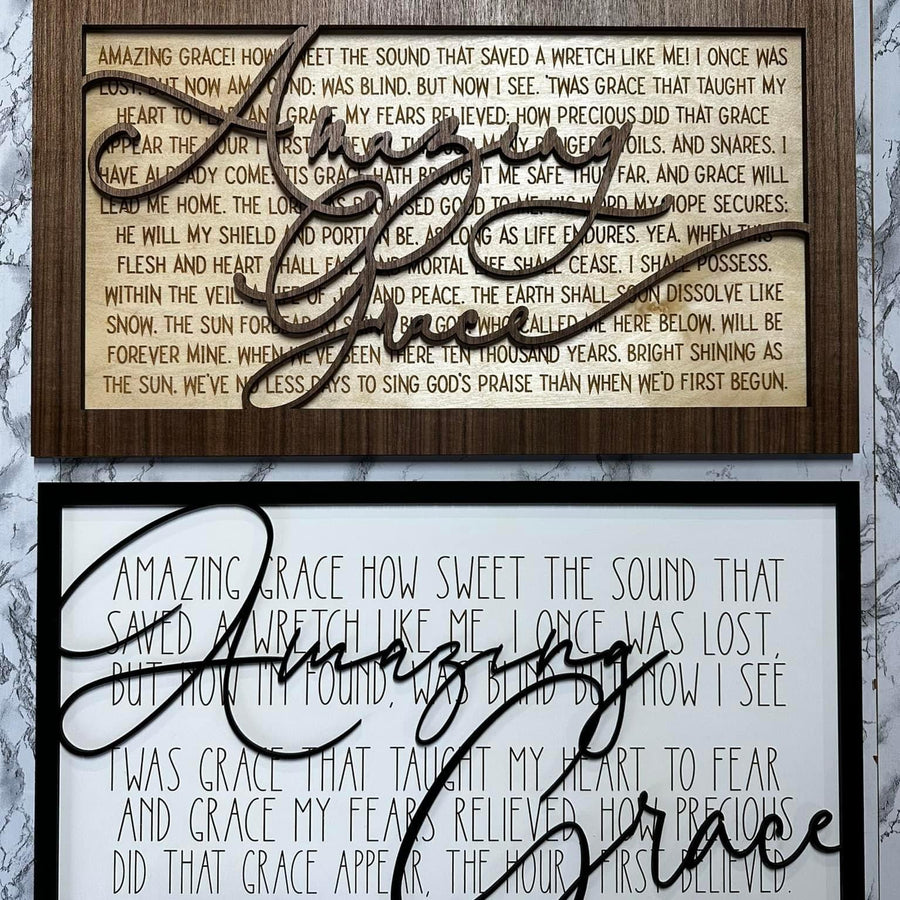 AMAZING GRACE! HOW SWEET THE SOUND THAT SAVED A WRETCH LIKE ME! I ONCE WAS
LOST, BUT NOW AM FOUND; WAS BLIND, BUT NOW I SEE. 'TWAS GRACE THAT TAUGHT MY
HEART TO FEAR AND GRACE MY FEARS RELIEVED; HOW PRECIOUS DID THAT GRACE
APPEAR THE HOUR I FIRST BELIEVED. THROUGH MANY DANGERS, TOILS, AND SNARES, I
HAVE ALREADY COME; 'TIS GRACE HATH BROUGHT ME SAFE THUS FAR, AND GRACE WILL
LEAD ME HOME. THE LORD HAS PROMISED GOOD TO ME, HIS WORD MY HOPE SECURES;
HE WILL MY SHIELD AND PORTION BE, AS LONG AS LIFE ENDURES. YEA, WHEN THIS
FLESH AND HEART SHALL FAIL, AND MORTAL LIFE SHALL CEASE, I SHALL POSSESS,
WITHIN THE VEIL, A LIFE OF JOY AND PEACE. THE EARTH SHALL SOON DISSOLVE LIKE
SNOW, THE SUN FORBEAR TO SHINE; BUT GOD, WHO CALLED ME HERE BELOW, WILL BE
FOREVER MINE. WHEN WE'VE BEEN THERE TEN THOUSAND YEARS, BRIGHT SHINING AS
THE SUN, WE'VE NO LESS DAYS TO SING GOD'S PRAISE THAN WHEN WE'D FIRST BEGUN.
Amazing
Grace
AMAZING GRACE HOW SWEET THE SOUND THAT
SAVED A WRETCH LIKE ME. I ONCE WAS LOST,
BUT NOW I'M FOUND, WAS BLIND BUT NOW I SEE
TWAS GRACE THAT TAUGHT MY HEART TO FEAR
AND GRACE MY FEARS RELIEVED. HOW PRECIOUS
DID THAT GRACE APPEAR, THE HOUR I FIRST BELIEVED.
Amazing
Grace